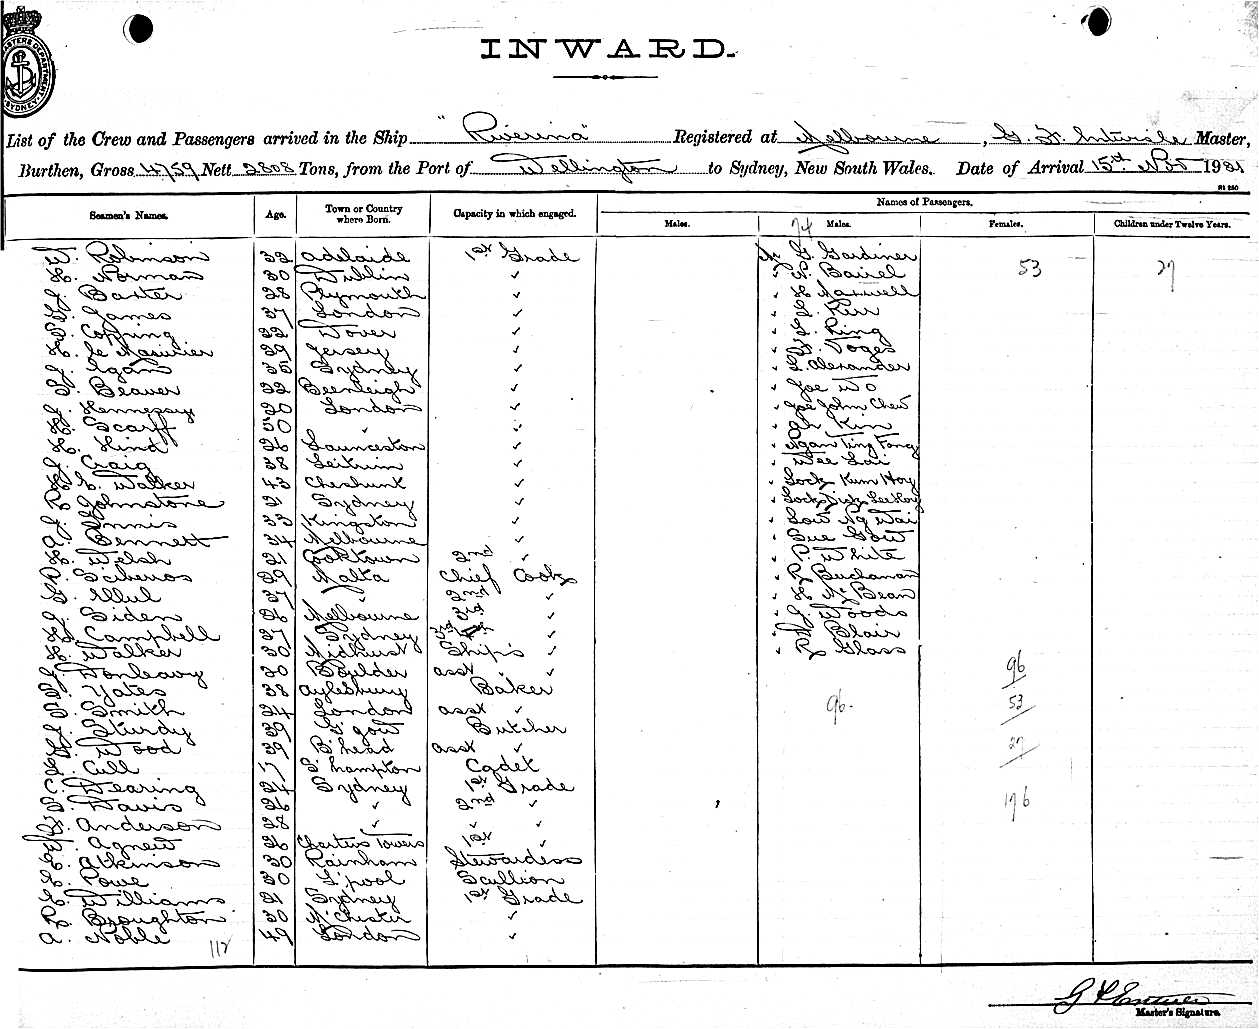 INWARD.
List of the Crew and Passengers arrived in the Ship "Riverina" Registered at Melbourne, G. Master,
Burthen, Gross 4759 Nett 2808 Tons, from the Port of Wellington to Sydney, New South Wales. Date of Arrival 15th Nov 192
Seamen's Names. Age. Town or Country where Born. Capacity in which engaged. Names of Passengers.
Males. Males. Females. Children under Twelve Years.
74
W. Robinson 32 Adelaide 1st Grade G. Gardiner
H. Norman 30 Dublin ✓ Baird 53 27
J. Baxter 28 Plymouth ✓ H Maxwell
James 37 London ✓ Kerr
Copping 22 Dover ✓ King
H. Le 29 Jersey ✓ Voges
J. Egan 35 Sydney ✓ Alexander
Beaver 22 Beenleigh ✓ Joe Wo
J. Hennessy 20 London ✓ Joe John Chew
H. Scarff 50 ✓ ✓ Ah Kin
H. Hind 26 Launceston ✓ Ngan Ting Fong
J. Craig 38 Leitrim ✓ Wee Lai
Walker 43 Cheshunt ✓ Lock Kum Hoy
R. Johnstone 21 Sydney ✓ Lock Dick
J. Innis 33 Kingston ✓ Low Ng Wai
A. Bennett 34 Melbourne ✓ Sue Gow
H. Welsh 21 Cooktown 2nd ✓ C. White
29 Malta Chief Cook Buchanan
Ellul 37 ✓ 2nd ✓ H McBean
J. Siden 26 Melbourne 3rd ✓ Woods
Campbell 27 Sydney ✓ Blair
H. Walker 30 Midhurst Ship's ✓ R Glass
J. Donleavy 30 Boulder asst ✓ 96
Yates 38 Aylesbury Baker
Smith 24 London asst ✓ 96. 53
J. Sturdy 39 G'gow Butcher
Wood 39 B'head asst ✓ 27
Cull 17 S'hampton Cadet
C. Dearing 24 Sydney 1st Grade
Davis 26 ✓ 2nd ✓ 176
Anderson 28 ✓ ✓ ✓
W. Agnew 26 Charters Towers 1st ✓
Atkinson 30 Rainham Stewardess
Rowe 30 L'pool Scullion
H. Williams 21 Sydney 1st Grade
R. Broughton 30 M'Chester ✓
A. Noble 49 London ✓
112
Master's Signature.